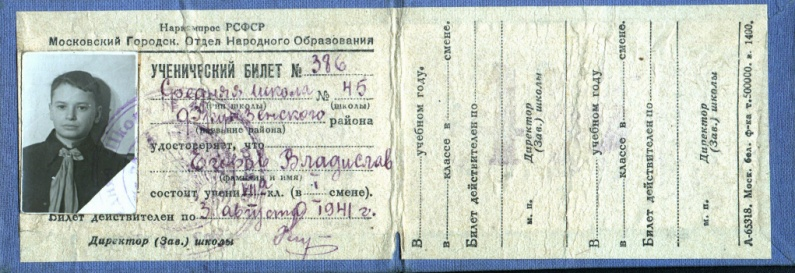 Наркомпрос РСФСР
Московский Городск. Отдел Народного Образования
УЧЕНИЧЕСКИЙ БИЛЕТ № 386
Средняя школа № 45
(тип школы) (школы)
Фрунзенского района
(название района)
удостоверяет, что
Егоров Владислав
(фамилия и имя)
состоит учени кл. (в I смене).
Билет действителен по 3 августа 1941 г.
Директор (Зав.) школы
В учебном году.
в классе в смене.
Билет действителен по
Директор
(Зав.) школы
м. п.
В учебном году
в классе в смене.
Билет действителен по
Директор
(Зав.) школы
м. п.
А-65318. Моск. бел. Ф-ка з. 1400.